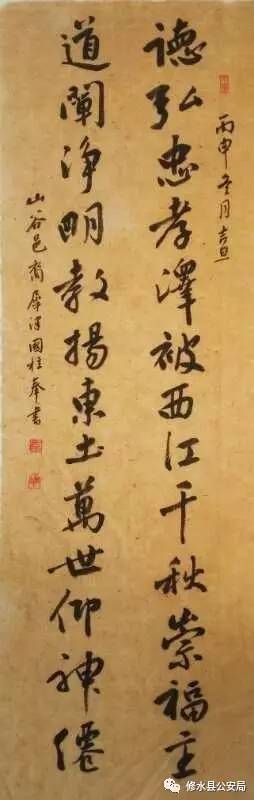 丙申冬月吉旦
德弘忠孝澤被西江千秋崇福主
道闡淨明教揚東土萬世仰神僊
山谷邑裔國柱奉書
修水县公安局